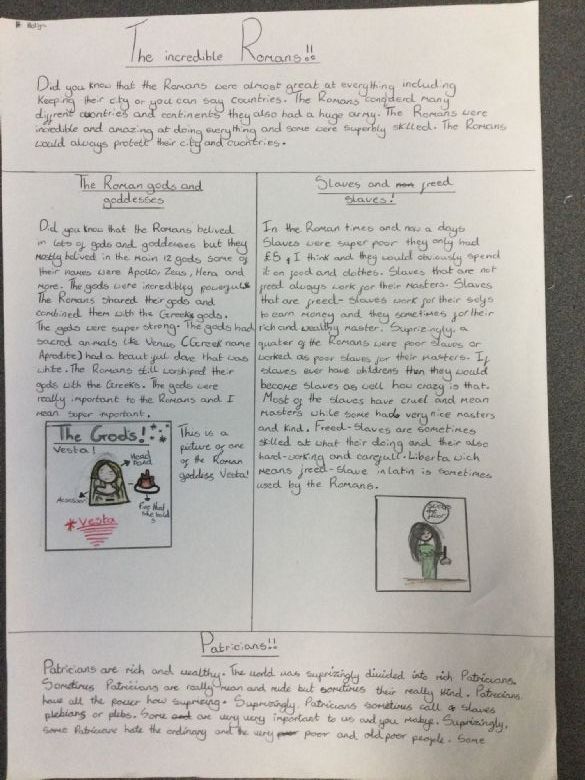 The incredible Romans!!
Did you know that the Romans were almost great at everything including
Keeping their city or you can say countries. The Romans conderd many
diffrent countries and continents they also had a huge army. The Romans were
incredible and amazing at doing everything and some were superbly skilled. The Romans
would always protett their city and countries.
The Roman gods and
goddesses
Did you know that the Romans belived
in lots of gods and goddesses but they
mostly belived in the main 12 gods some of
their names were Apollo, Zeus, Hera and
more. The gods were incredibley powerful.
The Romans shared their gods and
combined them with the Greeks gods.
The gods were super strong. The gods had
sacred animals like Venus (Greek name
Aprodite) had a beautiful dove that was
white. The Romans still worshiped their
gods with the Greeks. The gods were
really important to the Romans and I
mean super important.
The Gods!
Vesta!
Head
Band
Vesta
This is a
picture of one
of the Roman
goddess Vesta!
Slaves and freed
slaves!
In the Roman times and now a days
Slaves were super poor they only had
£5 I think and they would obviously spend
it on food and clothes. Slaves that are not
freed always work for their masters. Slaves
that are freed-slaves work for their selfs
to earn money and they sometimes for their
rich and wealthy master. Suprizingly, a
quater of the Romans were poor slaves or
worked as poor slaves for their masters. If
slaves ever have childrens then they would
become slaves as well how crazy is that.
Most of the slaves have cruel and mean
masters while some had very nice masters
and kind. Freed-slaves are sometimes
skilled at what their doing and their also
hard-working and carefull. Liberta wich
means freed-slave in latin is sometimes
used by the Romans.
Sweep
the
floor
Patricians!!
Patricians are rich and wealthy. The world was suprizingly divided into rich Patricians.
Sometimes Patricians are really mean and rude but sometimes their really kind. Patricians
have all the power how suprising. Suprizingly Patricians sometimes call slaves
plebians or plebs. Some are very very important to us and you maby. Suprizingly,
some Patricians hate the ordinary and the very poor and old poor people. Some